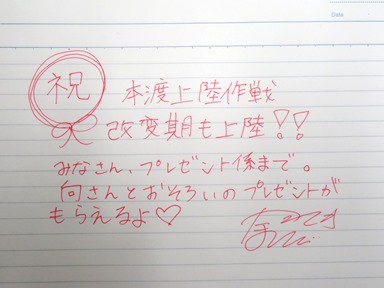 Date
祝
本渡上陸作戦
改変期も上陸!!
みなさん、プレゼント係まで。
向さんとおそろいのプレゼントが
もらえるよ♡